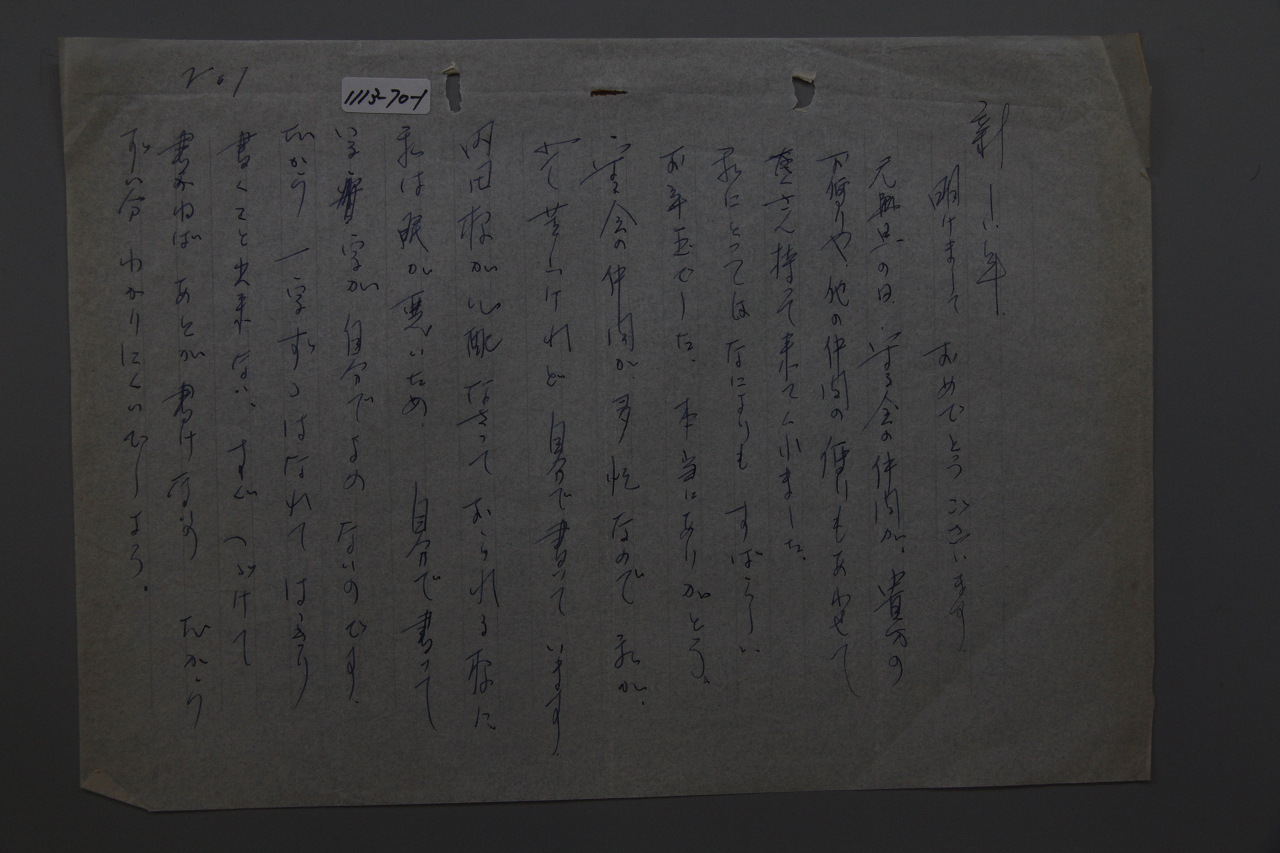 No1
1113-70-1
新しい年
明けまして おめでとう ございます
元旦の日、守る会の仲間が、貴方の
や、他の仲間の便りもあわせて
さん持って来てくれました。
私にとってはなによりも すばらしい
お年玉でした。本当にありがとう。
守る会の仲間が、多忙なので 私が、
苦しいけれど 自分で書いて います。
内田様が心配なさって おられる様に
私は眼が悪いため、 自分で書って
いる字が 自分でよめ ないのです。
だから 一字ずつはなれて はっきり
書くこと出来ない、すぐ つづけて
書かねば あとが 書けない だから
ずい分 わかりにくいでしょう。